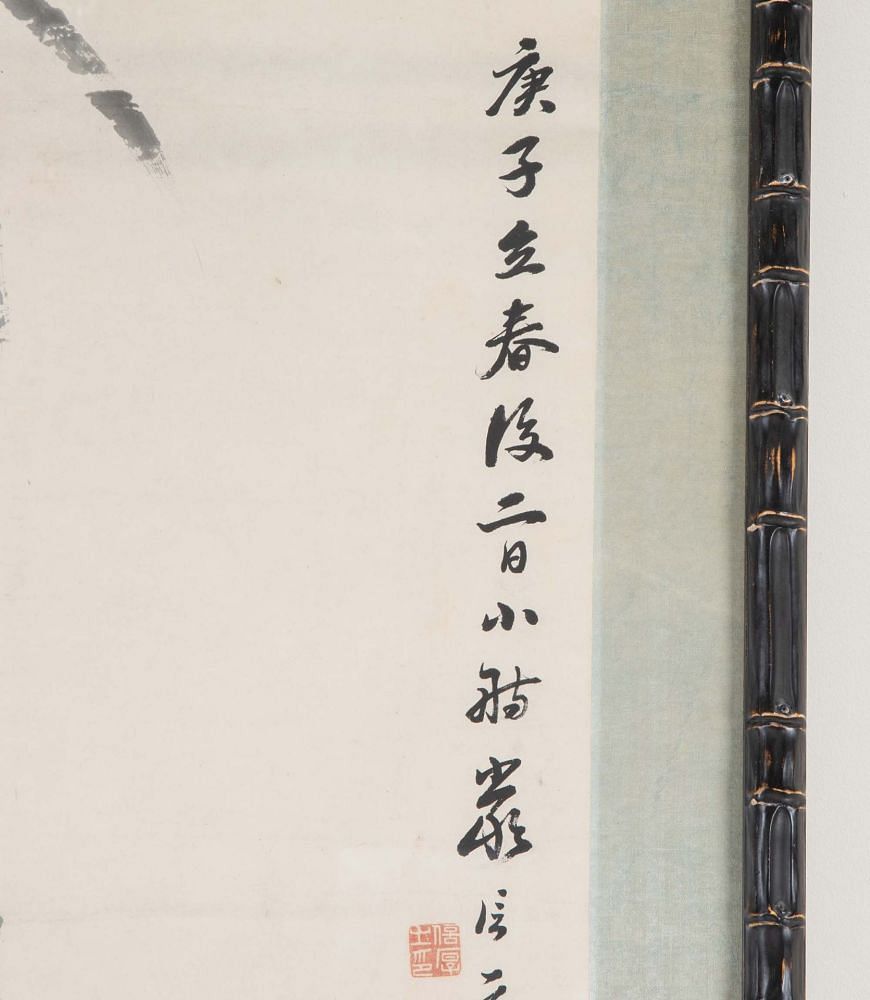 庚子立春後二日小舫嚴信